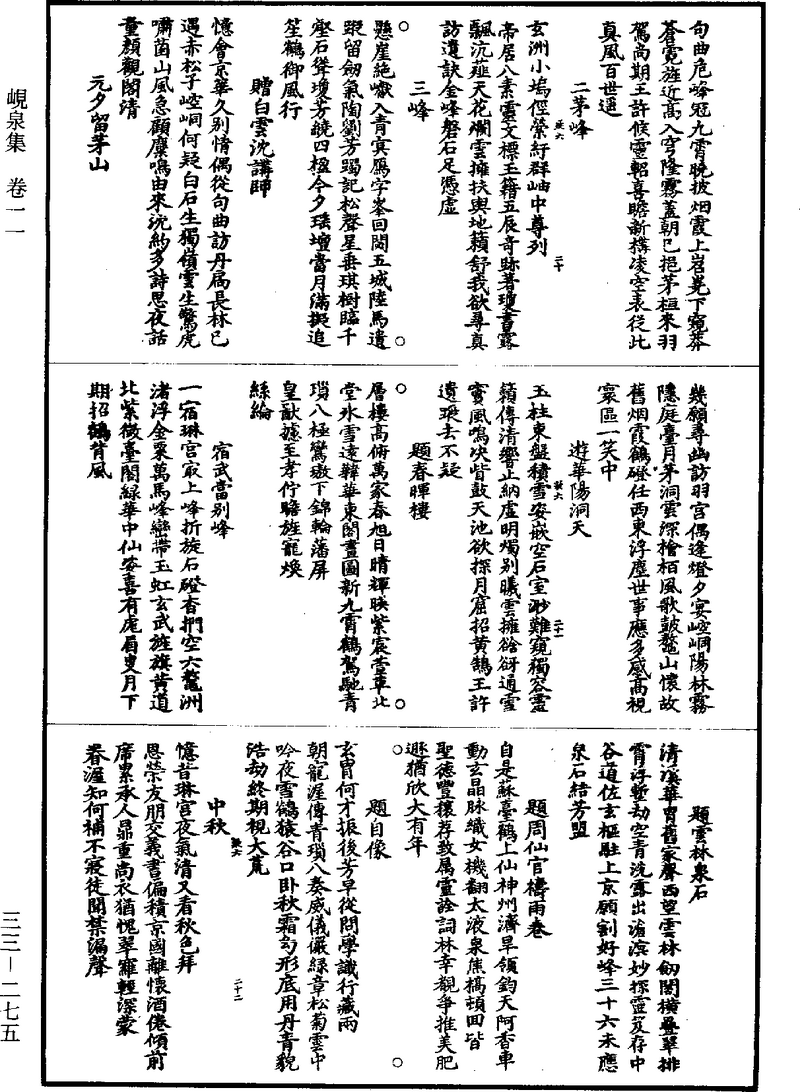 峴泉集　卷一一
三三—二七五
句曲危峰冠九霄晚披烟霞上岧嶤下窺莽
蒼霓旌近高入穹隆霧蓋朝已挹茅桓來羽
駕尚期王許候靈軺喜瞻新構凌空表從此
真風百世遥
二茅峰
玄洲小塢徑縈紆群岫中尊列
帝居八素靈文標玉籍五辰奇跡著瓊書露
飄沆薤天花爛雲擁扶輿地籟舒我欲尋真
訪遺訣金峰磐石足憑虛
三峰
懸崖絶巘入青冥鴈字峯回閟五城陸馬遺
蹤留劒氣陶劉芳躅記松聲星垂琪樹臨千
壑石聳瓊芳統四楹今夕瑶壇當月滿擬追
笙鶴御風行
贈白雲沈講師
憶會京華久别情偶從句曲訪丹扃長林已
遇赤松子崆峒何疑白石生獨嶺雲生驚虎
嘯菌山風急顧麋鳴由來沈約多詩思夜話
童顏觀閣清
元夕留茅山
幾願尋幽訪羽宫偶逢燈夕宴崆峒陽林霧
隱庭臺月茅洞雲深檜栢風歌鼓鰲山懷故
舊烟霞鶴磴任西東浮塵世事應多感高視
寰區一笑中
遊華陽洞天
玉柱東盤積雪安嵌空石室渺難窺獨容靈
籟傳清響止納虛明燭别曦雲擁谽谺通雪
竇風鳴吷皆鼓天池欲探月窟招黄鵠王許
遺踪去不疑
題春暉樓
層樓高俯萬家春旭日晴輝映紫宸萱草北
堂氷雪遠韡華東閣畫圖新九霄鶴駕馳青
瑣八極鸞璈下錦輪藩屏
皇猷據至孝佇瞻旌寵煥
絲綸
宿武當别峰
一宿琳宫最上峰折旋石磴杳捫空六鰲洲
渚浮金粟萬馬峰巒帶玉虹玄武旌旗黄道
北紫微臺閣緑華中仙姿喜有虎眉叟月下
期招鶴背風
題雲林泉石
清溪華胄舊家聲西望雲林劒閣橫疊翠排
霄浮塹劫空青洗露出滄溟妙探靈笈存中
谷道佐玄樞駐上京願割好峰三十六未應
泉石結芳盟
題周仙官禱雨卷
自是蘇臺鶴上仙神州濟旱領鈞天阿香車
動玄晶脉織女機翻太液泉焦槁頓回皆
聖德豐穰荐致属靈詮詞林幸觀爭推美肥
遯猶欣大有年
題自像
玄胄何才振後芳早從問學識行藏兩
朝寵渥傳青瑣八奏威儀儼緑章松菊雲中
吟夜雪鶴猿谷口卧秋霜勾形底用丹青貌
浩劫終期視大荒
中秋
憶昔琳宫夜氣清又看秋色拜
恩榮友朋交義書偏積京國離懷酒倦傾前
席累承人鼎重尚衣猶愧翠羅輕深蒙
眷渥知何補不寢徒聞禁漏聲